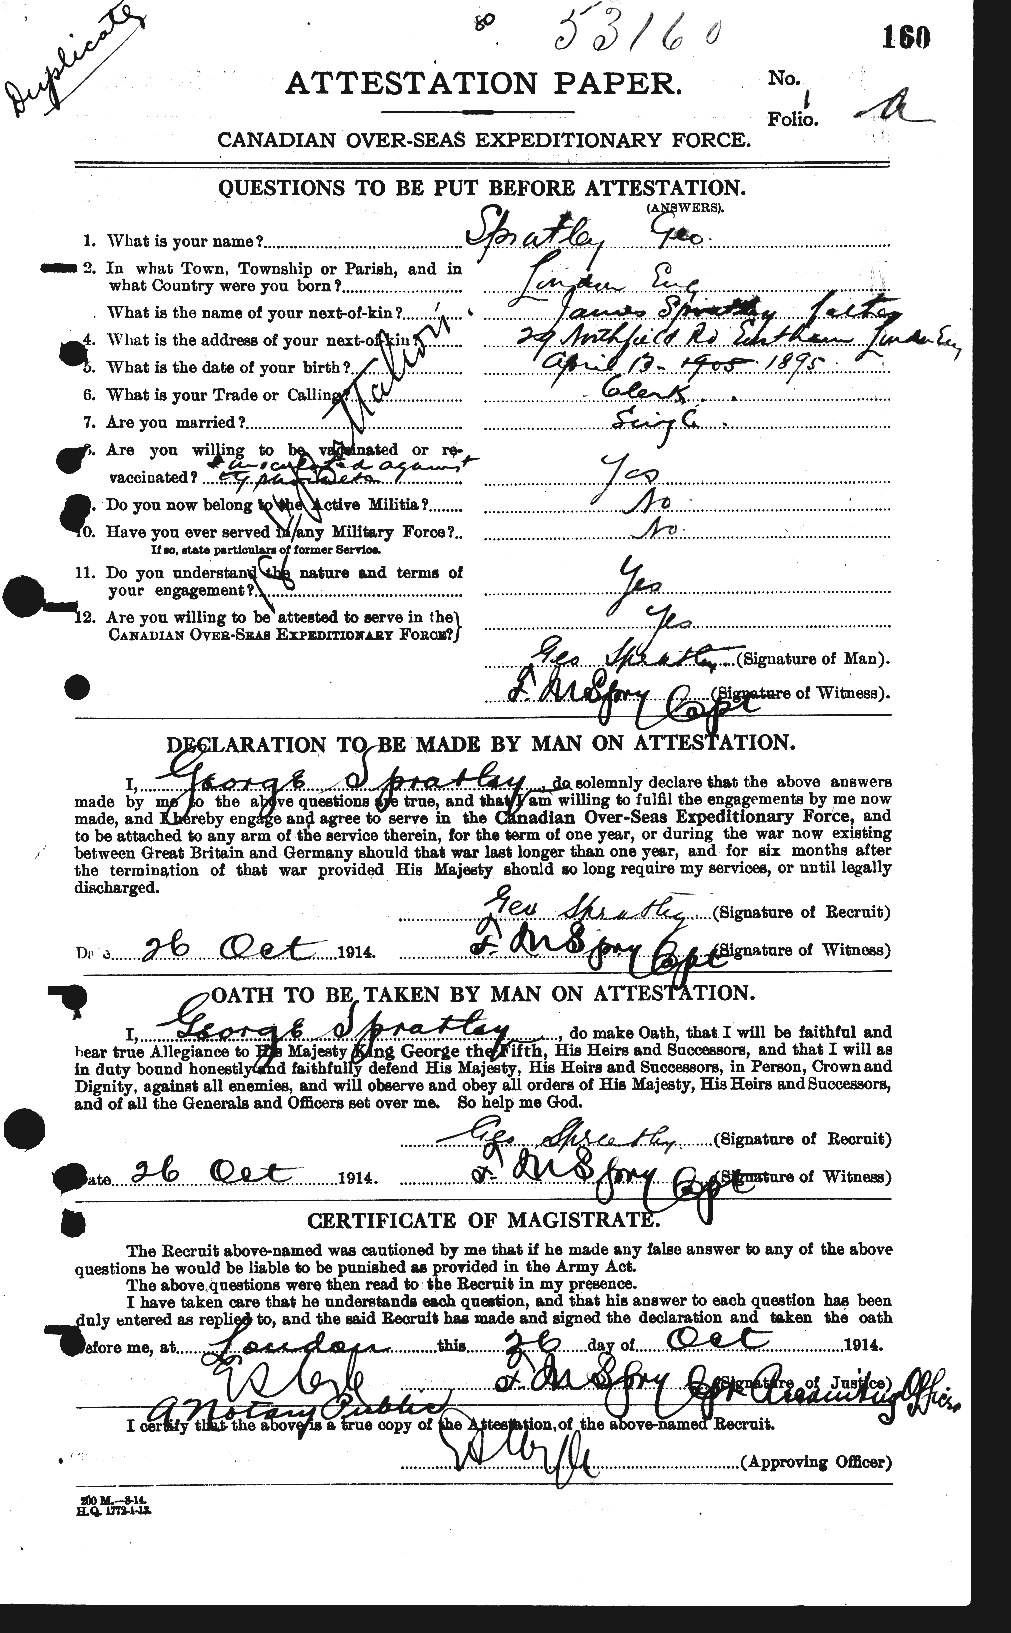 Duplicate
80
53160
160
ATTESTATION PAPER.
No.
Folio.
A
CANADIAN OVER-SEAS EXPEDITIONARY FORCE.
QUESTIONS TO BE PUT BEFORE ATTESTATION.
(ANSWERS).
1. What is your name? Spratley Geo.
2. In what Town, Township or Parish, and in
what Country were you born? London Eng
What is the name of your next-of-kin? James Spratley father
4. What is the address of your next-of-kin? 29 Northfield Rd Eastham London Eng
5. What is the date of your birth? April 13 - 1905 1895
6. What is your Trade or Calling? Clerk
7. Are you married? Single
8. Are you willing to be vaccinated or re-
+ inoculated against
vaccinated? Yes
9. Do you now belong to the Active Militia? No
10. Have you ever served in any Military Force? No.
If so, state particulars of former Service.
18th Battalion
11. Do you understand the nature and terms of
your engagement? Yes
12. Are you willing to be attested to serve in the
CANADIAN OVER-SEAS EXPEDITIONARY FORCE? Yes
Geo Spratley (Signature of Man).
Capt (Signature of Witness).
DECLARATION TO BE MADE BY MAN ON ATTESTATION.
I, George Spratley, do solemnly declare that the above answers
made by me to the above questions are true, and that I am willing to fulfil the engagements by me now
made, and I hereby engage and agree to serve in the Canadian Over-Seas Expeditionary Force, and
to be attached to any arm of the service therein, for the term of one year, or during the war now existing
between Great Britain and Germany should that war last longer than one year, and for six months after
the termination of that war provided His Majesty should so long require my services, or until legally
discharged.
Geo Spratley (Signature of Recruit)
Date 26 Oct 1914. Capt (Signature of Witness)
OATH TO BE TAKEN BY MAN ON ATTESTATION.
I, George Spratley, do make Oath, that I will be faithful and
bear true Allegiance to His Majesty King George the Fifth, His Heirs and Successors, and that I will as
in duty bound honestly and faithfully defend His Majesty, His Heirs and Successors, in Person, Crown and
Dignity, against all enemies, and will observe and obey all orders of His Majesty, His Heirs and Successors,
and of all the Generals and Officers set over me. So help me God.
Geo Spratley (Signature of Recruit)
Date 26 Oct 1914. Capt (Signature of Witness)
CERTIFICATE OF MAGISTRATE.
The Recruit above-named was cautioned by me that if he made any false answer to any of the above
questions he would be liable to be punished as provided in the Army Act.
The above questions were then read to the Recruit in my presence.
I have taken care that he understands each question, and that his answer to each question has been
duly entered as replied to, and the said Recruit has made and signed the declaration and taken the oath
before me, at London this 26 day of Oct 1914.
Capt (Signature of Justice) Officer
A Notary Public
I certify that the above is a true copy of the Attestation of the above-named Recruit.
(Approving Officer)
200 M.—8-14.
H.Q. 1772-1-13.